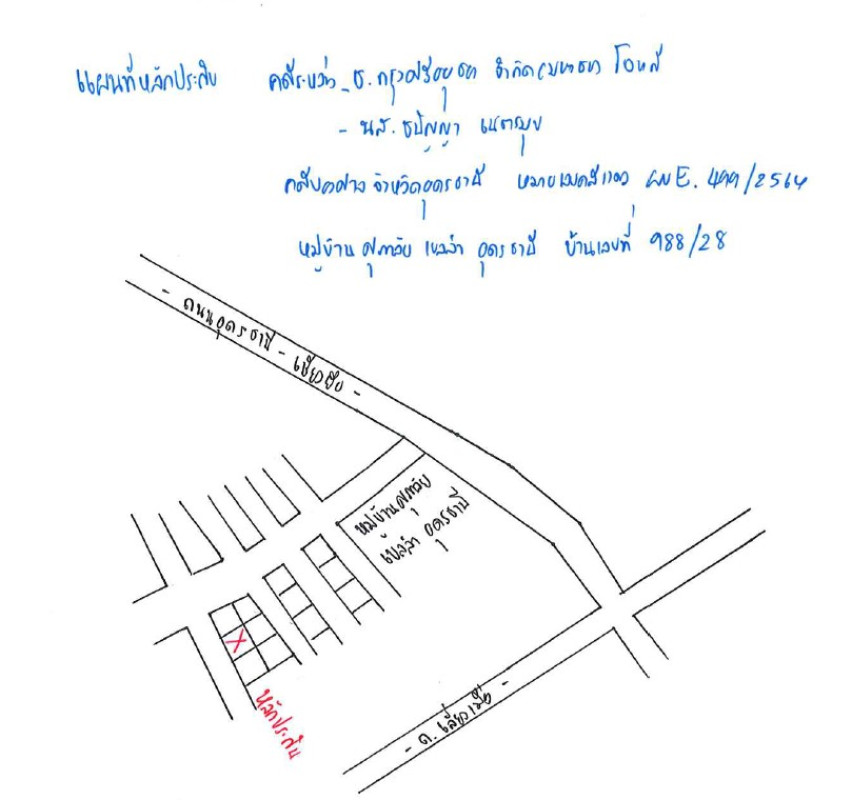 แผนที่หลักประกัน คดีระหว่าง ธ.กรุงศรีอยุธยา จำกัด (มหาชน) โจทก์
- นส. ธปัญญา
ศาล จังหวัดอุดรธานี หมายเลขคดีแดง ผบ E. 499/2564
หมู่บ้าน ศุภาลัย เบลล่า อุดรธานี บ้านเลขที่ 988/28
- ถนนอุดรธานี -
หมู่บ้านศุภาลัย
เบลล่า อุดรธานี
X
หลักประกัน
- ถ. เลี่ยงเมือง -